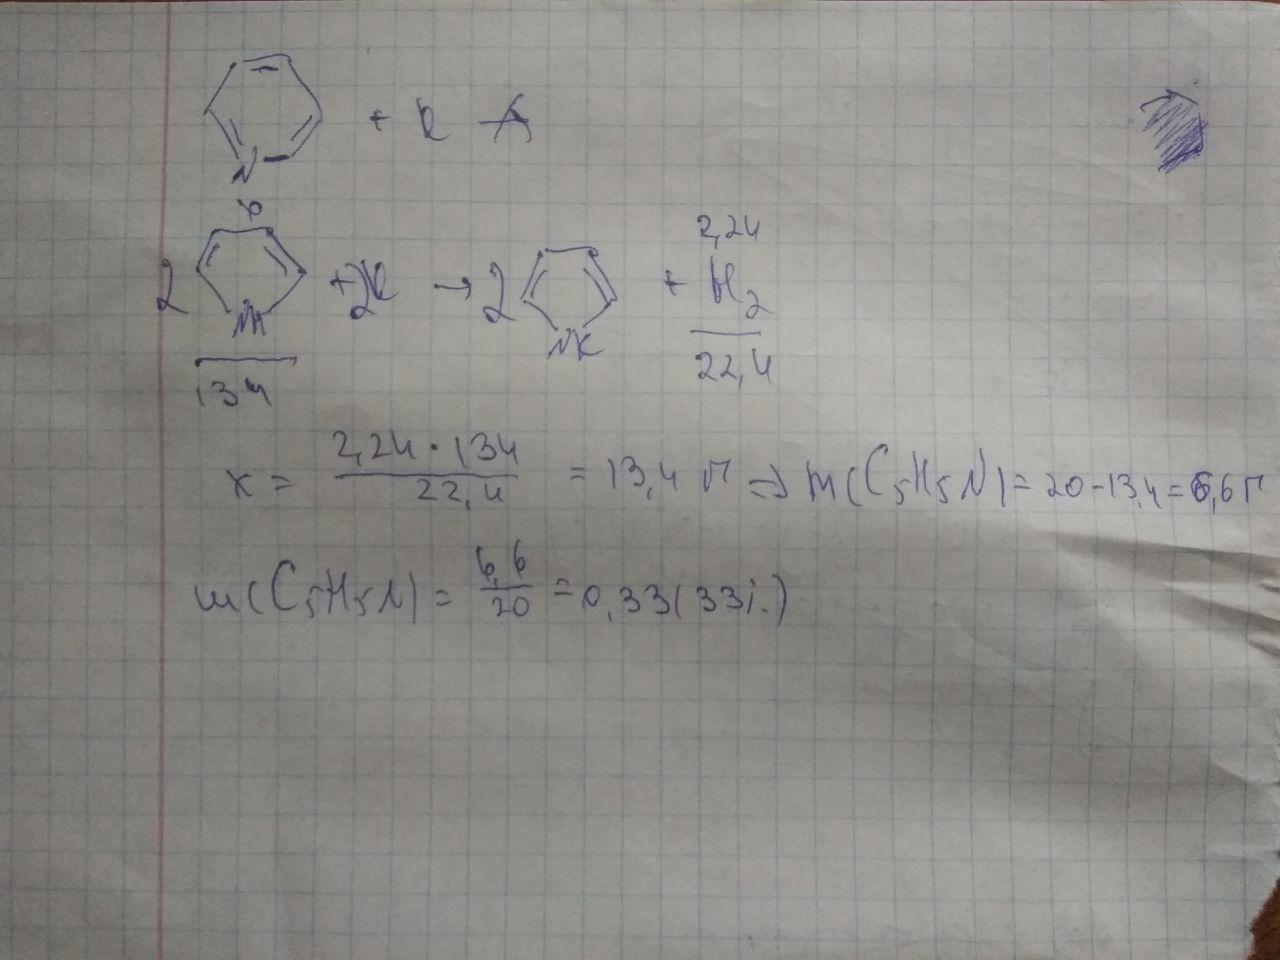 N + K ↛
x 2,24
2 NH + 2K → 2 NK + H₂
134 22,4
x = 2,24 · 134 / 22,4 = 13,4 г => m(C₅H₅N) = 20 - 13,4 = 6,6 г
ω(C₅H₅N) = 6,6 / 20 = 0,33 (33%)